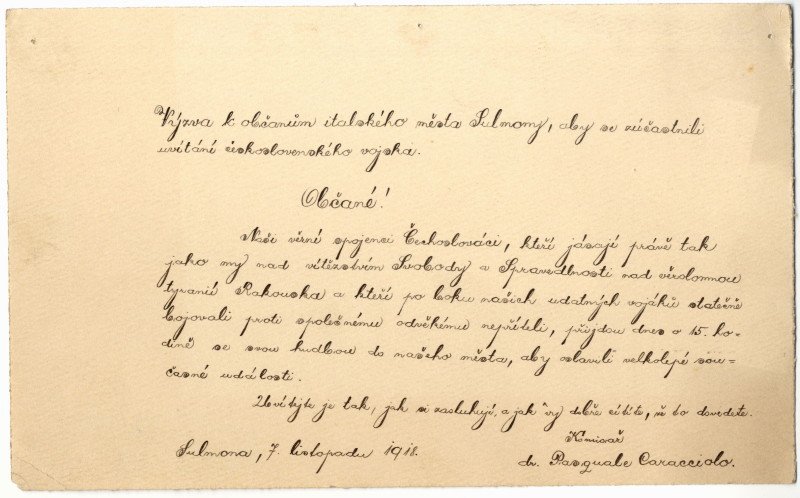 Výzva k občanům italského města Sulmony, aby se zúčastnili
uvítání československého vojska.
Občané!
Naši věrní spojenci Čechoslováci, kteří jásají právě tak
jako my nad vítězstvím Svobody a Spravedlnosti nad věrolomnou
tyranií Rakouska a kteří po boku našich udatných vojáků statečně
bojovali proti společnému odvěkému nepříteli, přijdou dnes o 15. ho-
dině se svou hudbou do našeho města, aby oslavili velkolepé sou-
časné události.
Uvítejte je tak, jak si zasluhují, a jak vy dobře cítíte, že to dovedete.
Komisař
Sulmona, 7. listopadu 1918.
dr. Pasquale Caracciolo.